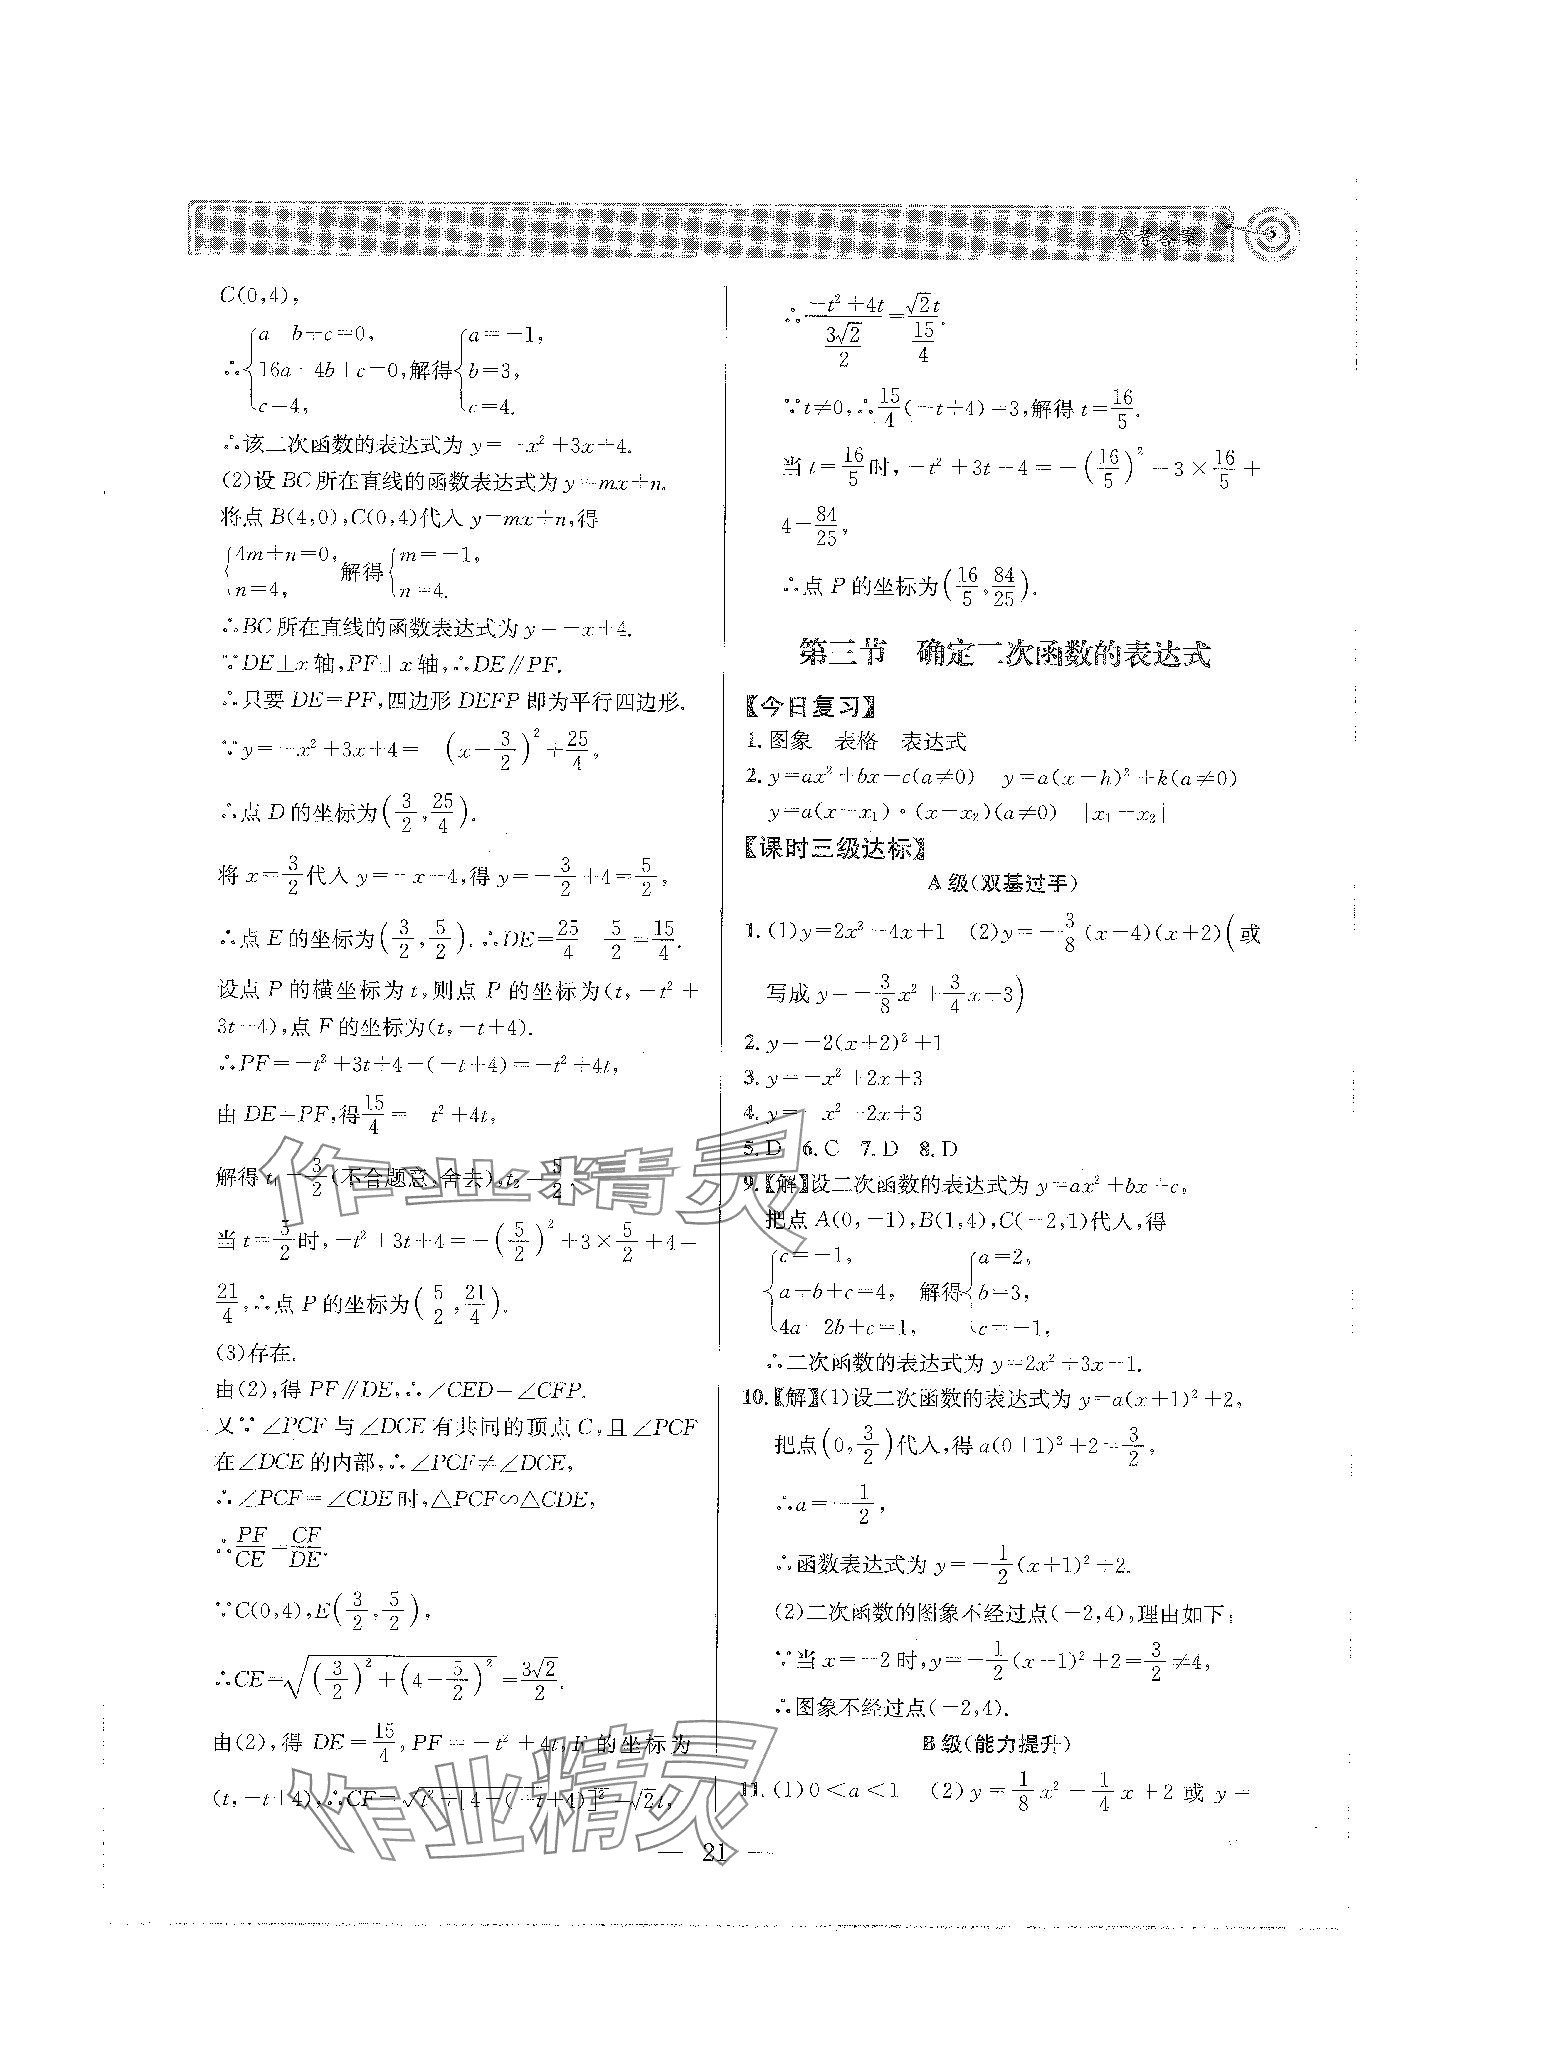 参考答案
C(0,4),
∴{a-b+c=0, 16a+4b+c=0, c=4, 解得{a=-1, b=3, c=4.
∴该二次函数的表达式为 y=-x²+3x+4.
(2)设 BC 所在直线的函数表达式为 y=mx+n.
将点 B(4,0),C(0,4)代入 y=mx+n,得
{4m+n=0, n=4, 解得{m=-1, n=4.
∴BC 所在直线的函数表达式为 y=-x+4.
∵DE⊥x 轴,PF⊥x 轴,∴DE∥PF.
∴只要 DE=PF,四边形 DEFP 即为平行四边形.
∵y=-x²+3x+4=-(x-3/2)²+25/4,
∴点 D 的坐标为(3/2,25/4).
将 x=3/2代入 y=-x+4,得 y=-3/2+4=5/2,
∴点 E 的坐标为(3/2,5/2).∴DE=25/4-5/2=15/4.
设点 P 的横坐标为 t,则点 P 的坐标为(t,-t²+
3t+4),点 F 的坐标为(t,-t+4).
∴PF=-t²+3t+4-(-t+4)=-t²+4t,
由 DE=PF,得15/4=-t²+4t,
解得 t₁=3/2(不合题意,舍去),t₂=5/2.
当 t=5/2时,-t²+3t+4=-(5/2)²+3×5/2+4=
21/4,∴点 P 的坐标为(5/2,21/4).
(3)存在.
由(2),得 PF∥DE,∴∠CED=∠CFP.
又∵∠PCF 与∠DCE 有共同的顶点 C,且∠PCF
在∠DCE 的内部,∴∠PCF≠∠DCE,
∴∠PCF=∠CDE 时,△PCF∽△CDE,
∴PF/CE=CF/DE.
∵C(0,4),E(3/2,5/2),
∴CE=√((3/2)²+(4-5/2)²)=3√2/2.
由(2),得 DE=15/4,PF=-t²+4t,F 的坐标为
(t,-t+4),∴CF=√(t²+[4-(-t+4)]²)=√2t,
∴(-t²+4t)/(3√2/2)=√2t/(15/4).
∵t≠0,∴15/4(-t+4)=3,解得 t=16/5.
当 t=16/5时,-t²+3t+4=-(16/5)²+3×16/5+
4=84/25,
∴点 P 的坐标为(16/5,84/25).
第三节 确定二次函数的表达式
【今日复习】
1.图象 表格 表达式
2.y=ax²+bx+c(a≠0) y=a(x-h)²+k(a≠0)
y=a(x-x₁)·(x-x₂)(a≠0) |x₁-x₂|
【课时三级达标】
A 级(双基过手)
1.(1)y=2x²-4x+1 (2)y=-3/8(x-4)(x+2)(或
写成 y=-3/8x²+3/4x+3)
2.y=-2(x+2)²+1
3.y=-x²+2x+3
4.y=-x²-2x+3
5.D 6.C 7.D 8.D
9.【解】设二次函数的表达式为 y=ax²+bx+c,
把点 A(0,-1),B(1,4),C(-2,1)代入,得
{c=-1, a+b+c=4, 4a-2b+c=1, 解得{a=2, b=3, c=-1,
∴二次函数的表达式为 y=2x²+3x-1.
10.【解】(1)设二次函数的表达式为 y=a(x+1)²+2,
把点(0,3/2)代入,得 a(0+1)²+2=3/2,
∴a=-1/2,
∴函数表达式为 y=-1/2(x+1)²+2.
(2)二次函数的图象不经过点(-2,4),理由如下:
∵当 x=-2 时,y=-1/2(x+1)²+2=3/2≠4,
∴图象不经过点(-2,4).
B 级(能力提升)
11.(1)0<a<1 (2)y=1/8x²-1/4x+2 或 y=
— 21 —
作业精灵
作业精灵